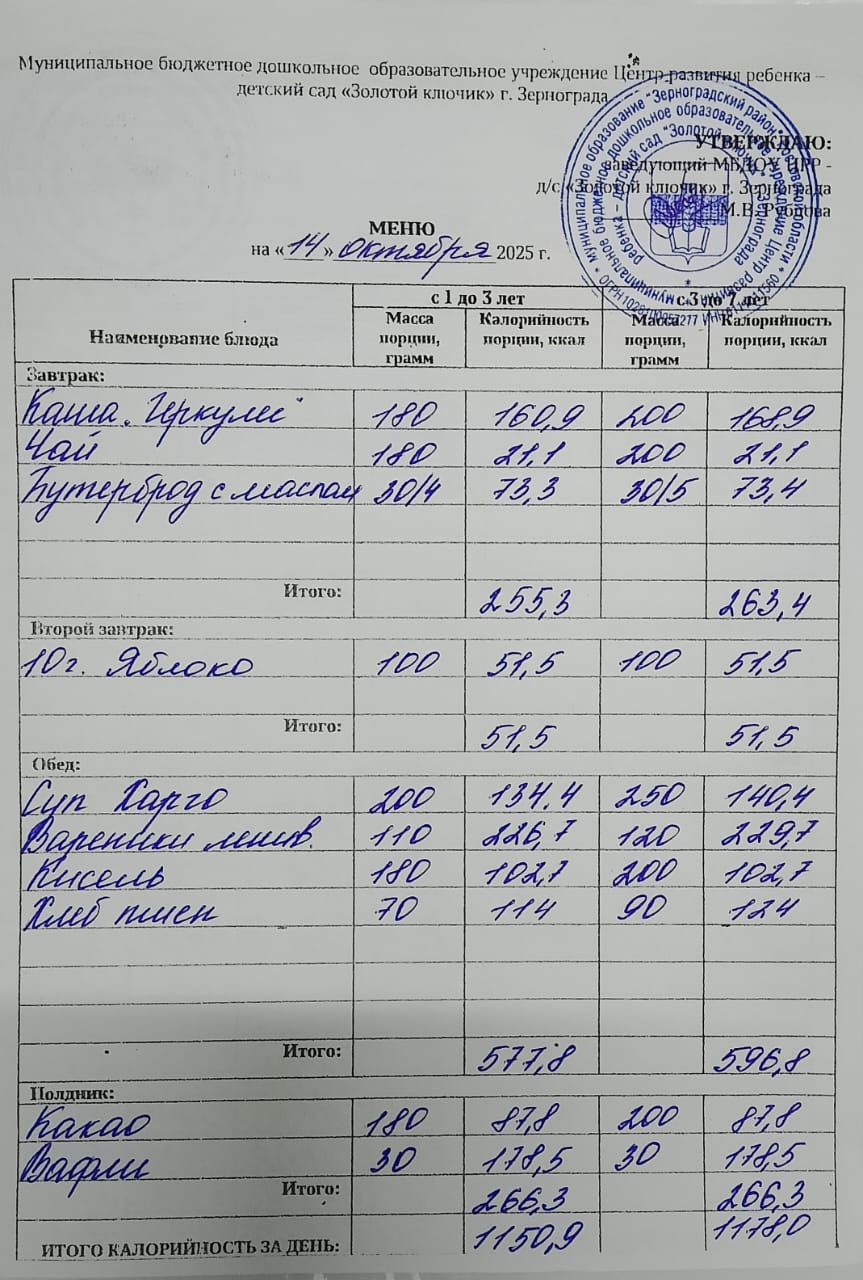 Муниципальное бюджетное дошкольное образовательное учреждение Центр развития ребенка –
детский сад «Золотой ключик» г. Зернограда
УТВЕРЖДАЮ:
заведующий МБДОУ ЦРР -
д/с «Золотой ключик» г. Зернограда
М.В. Рубцова
МЕНЮ
на « 14 » октября 2025 г.
Наименование блюда с 1 до 3 лет с 3 до 7 лет
Масса порции, грамм Калорийность порции, ккал Масса порции, грамм Калорийность порции, ккал
Завтрак:
Каша "Геркулес" 180 160,9 200 168,9
Чай 180 21,1 200 21,1
Бутерброд с маслом 30/4 73,3 30/5 73,4
Итого: 255,3 263,4
Второй завтрак:
10г. Яблоко 100 51,5 100 51,5
Итого: 51,5 51,5
Обед:
Суп Харчо 200 134,4 250 140,4
Вареники ленив. 110 226,7 120 229,7
Кисель 180 102,7 200 102,7
Хлеб пшен 70 114 90 124
Итого: 577,8 596,8
Полдник:
Какао 180 87,8 200 87,8
Вафли 30 178,5 30 178,5
Итого: 266,3 266,3
ИТОГО КАЛОРИЙНОСТЬ ЗА ДЕНЬ: 1150,9 1178,0